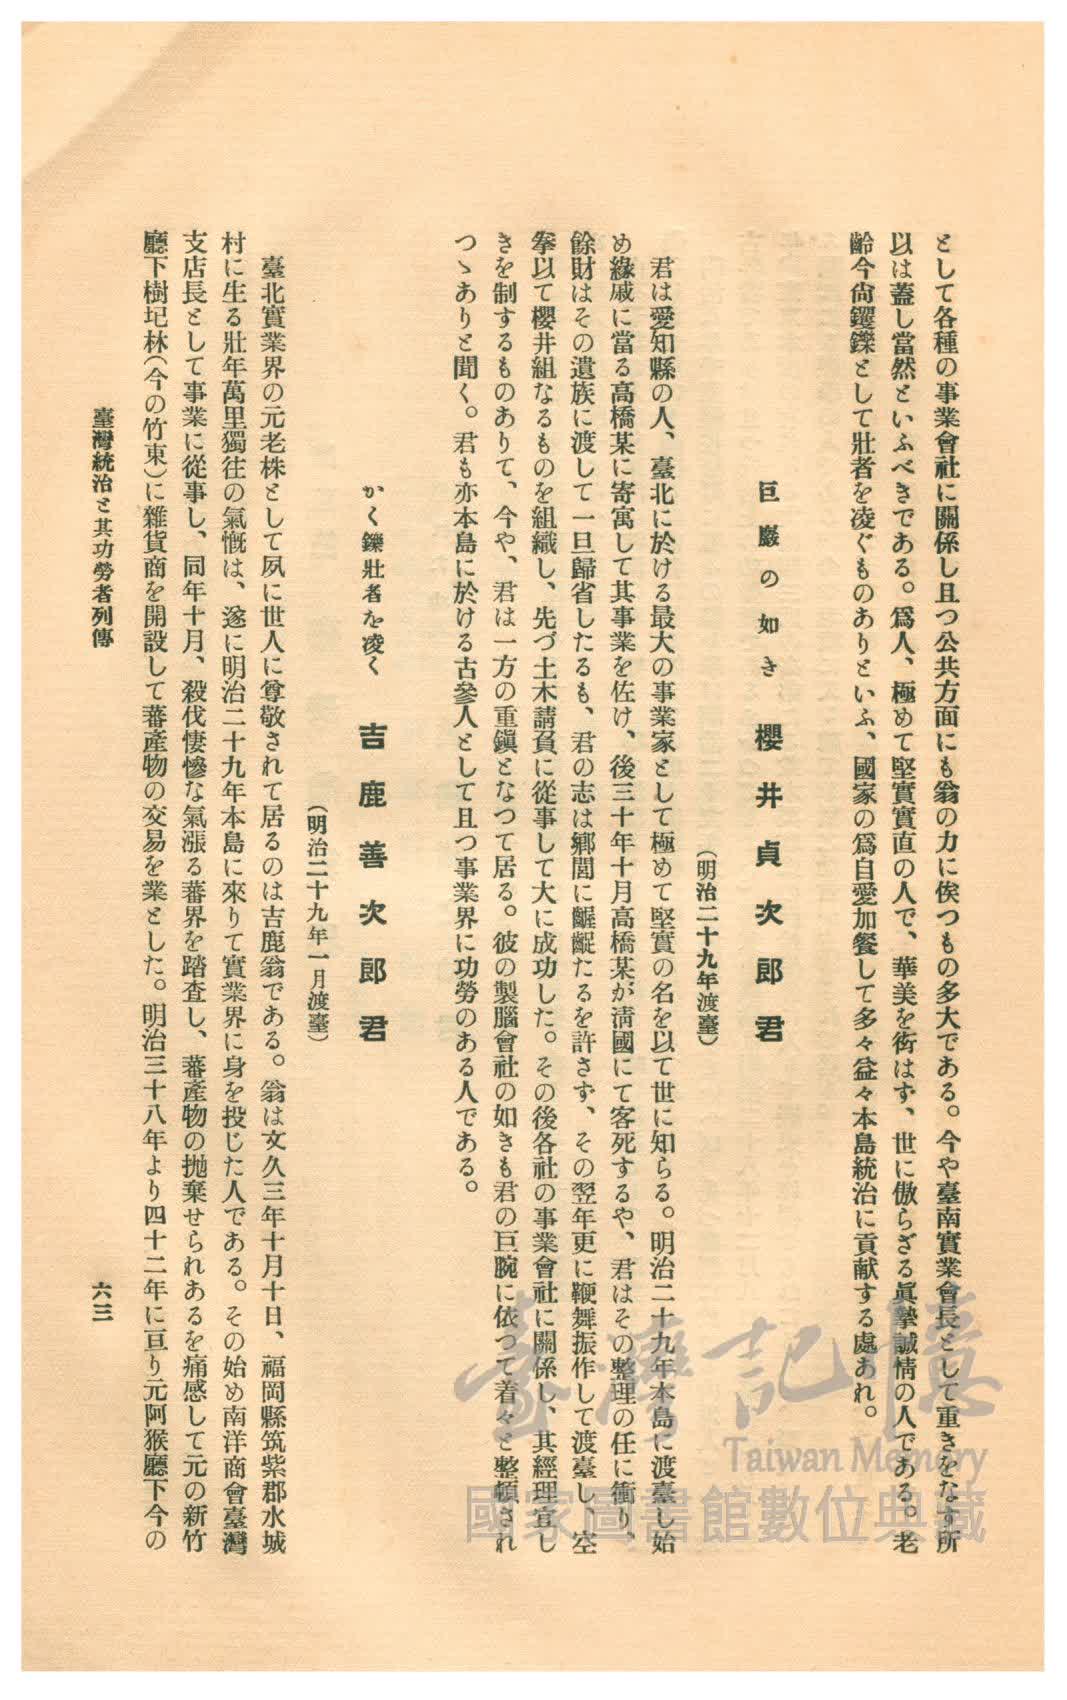 として各種の事業會社に關係し且つ公共方面にも翁の力に俟つもの多大である。今や臺南實業會長として重きをなす所
以は蓋し當然といふべきである。爲人、極めて堅實實直の人で、華美を衒はず、世に傲らざる眞摯誠情の人である。老
齡今尙钁鑠として壯者を凌ぐものありといふ、國家の爲自愛加餐して多々益々本島統治に貢献する處あれ。
巨巖の如き 櫻井貞次郎君
(明治二十九年渡臺)
君は愛知縣の人、臺北に於ける最大の事業家として極めて堅實の名を以て世に知らる。明治二十九年本島に渡臺し始
め緣戚に當る高橋某に寄寓して其事業を佐け、後三十年十月高橋某が淸國にて客死するや、君はその整理の任に衝り、
餘財はその遺族に渡して一旦歸省したるも、君の志は鄕閭に齷齪たるを許さず、その翌年更に鞭舞振作して渡臺し、空
拳以て櫻井組なるものを組織し、先づ土木請負に從事して大に成功した。その後各社の事業會社に關係し、其經理宜し
きを制するものありて、今や、君は一方の重鎭となつて居る。彼の製腦會社の如きも君の巨腕に依つて着々と整頓され
つゝありと聞く。君も亦本島に於ける古參人として且つ事業界に功勞のある人である。
かく鑠壯者を凌く 吉鹿善次郎君
(明治二十九年一月渡臺)
臺北實業界の元老株として夙に世人に尊敬されて居るのは吉鹿翁である。翁は文久三年十月十日、福岡縣筑紫郡水城
村に生る壯年萬里獨往の氣慨は、遂に明治二十九年本島に來りて實業界に身を投じた人である。その始め南洋商會臺灣
支店長として事業に從事し、同年十月、殺伐悽慘な氣漲る蕃界を踏査し、蕃產物の抛棄せられあるを痛感して元の新竹
廳下樹圯林(今の竹東)に雜貨商を開設して蕃產物の交易を業とした。明治三十八年より四十二年に亘り元阿猴廳下今の
臺灣統治と其功勞者列傳
六三
臺灣記憶
Taiwan Memory
國家圖書館數位典藏